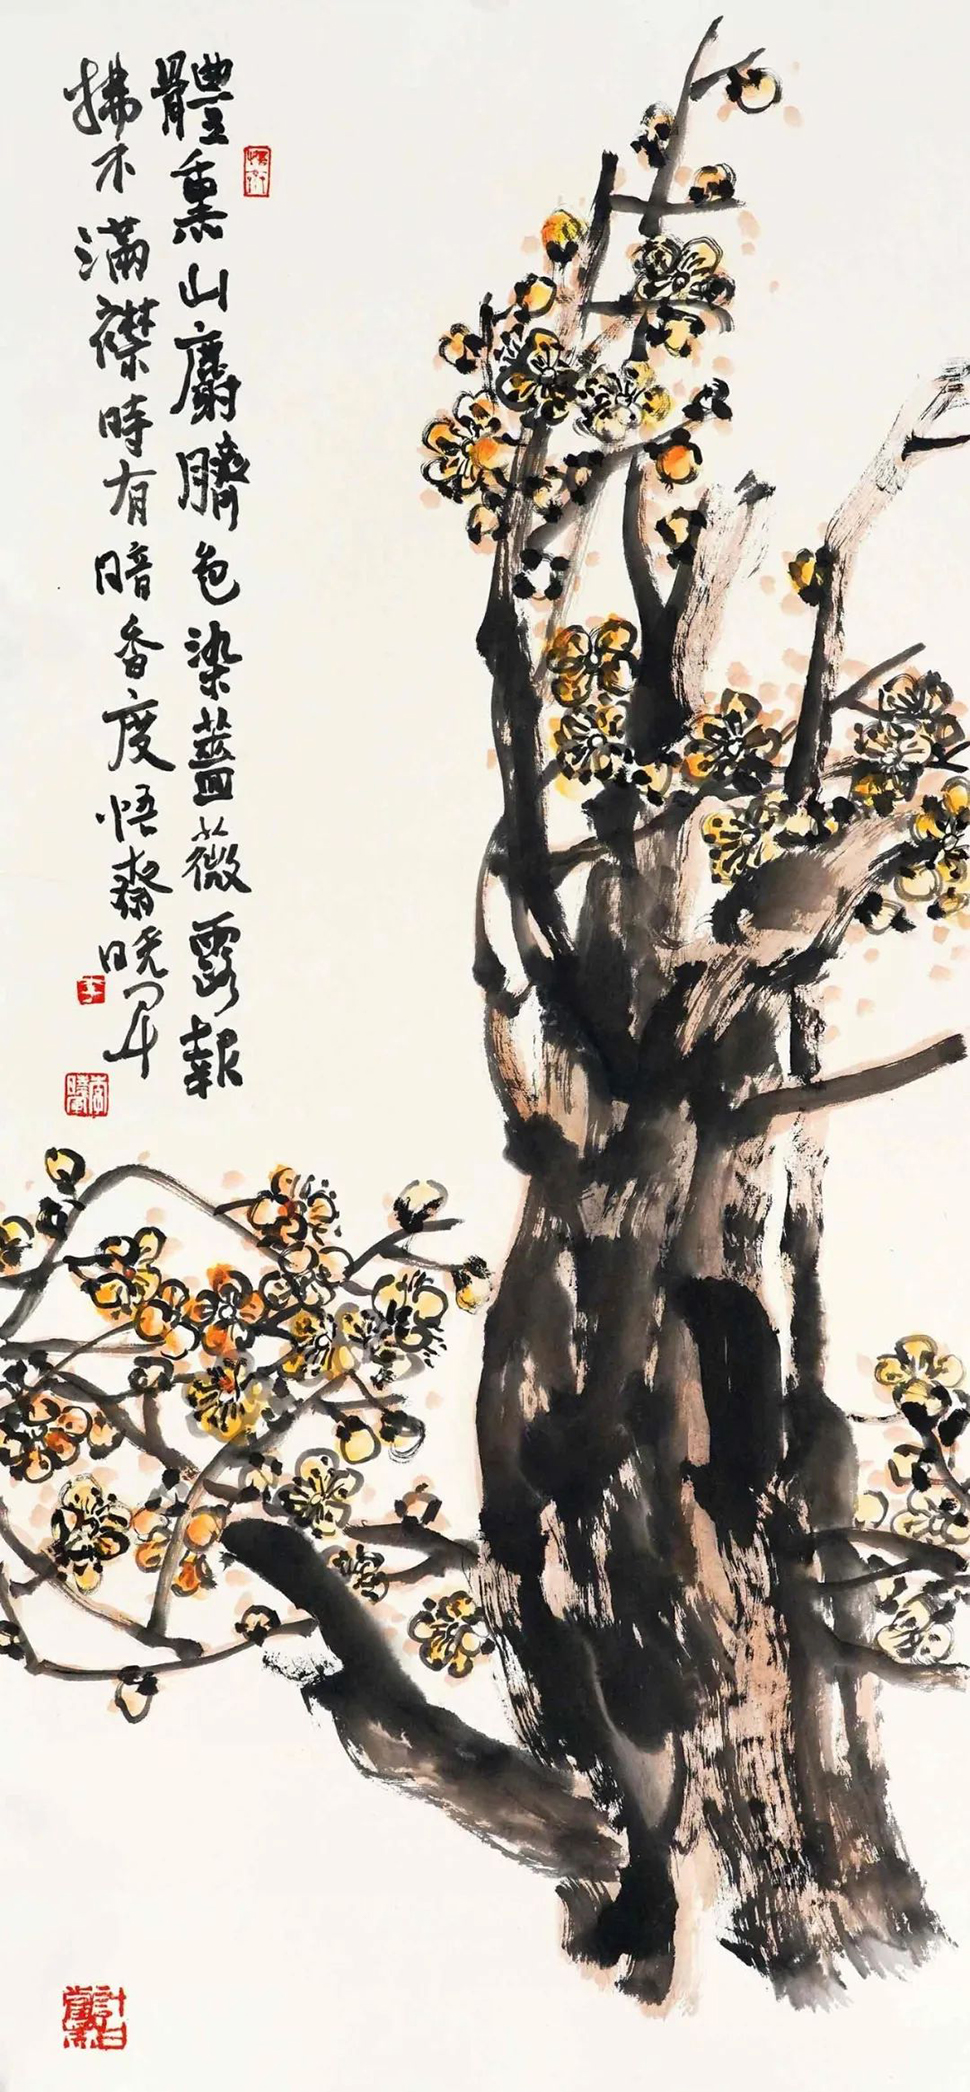 體熏山麝臍色染薔薇露報
拂不滿襟時有暗香度悟齋晓军